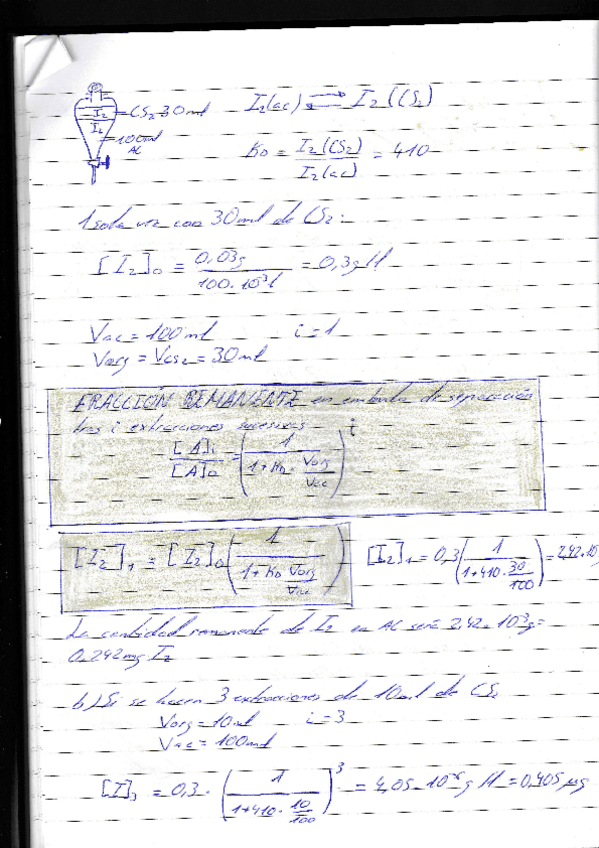 I₂
I₂
CS₂ 30 ml
100 ml
AC
I₂(ac) ⇌ I₂(CS₂)
K_D = I₂(CS₂) / I₂(ac) = 410
1 sola vez con 30 ml de CS₂:
[I₂]₀ = 0,03g / 100·10⁻³l = 0,3g/l
Vac = 100 ml i = 1
Vorg = V_CS₂ = 30 ml
FRACCIÓN REMANENTE en embudo de separación
tras i extracciones sucesivas
[A]ᵢ / [A]₀ = (1 / (1 + K_D · Vorg/Vac))ⁱ
[I₂]₁ = [I₂]₀ (1 / (1 + K_D Vorg/Vac)) [I₂]₁ = 0,3 (1 / (1 + 410 · 30/100)) = 2,42·10
La cantidad remanente de I₂ en AC será 2,42·10³g =
0,242 mg I₂
b) Si se hacen 3 extracciones de 10 ml de CS₂
Vorg = 10 ml i = 3
Vac = 100 ml
[I]₃ = 0,3 · (1 / (1 + 410 · 10/100))³ = 4,05·10⁻⁶ g/l = 0,405 µg